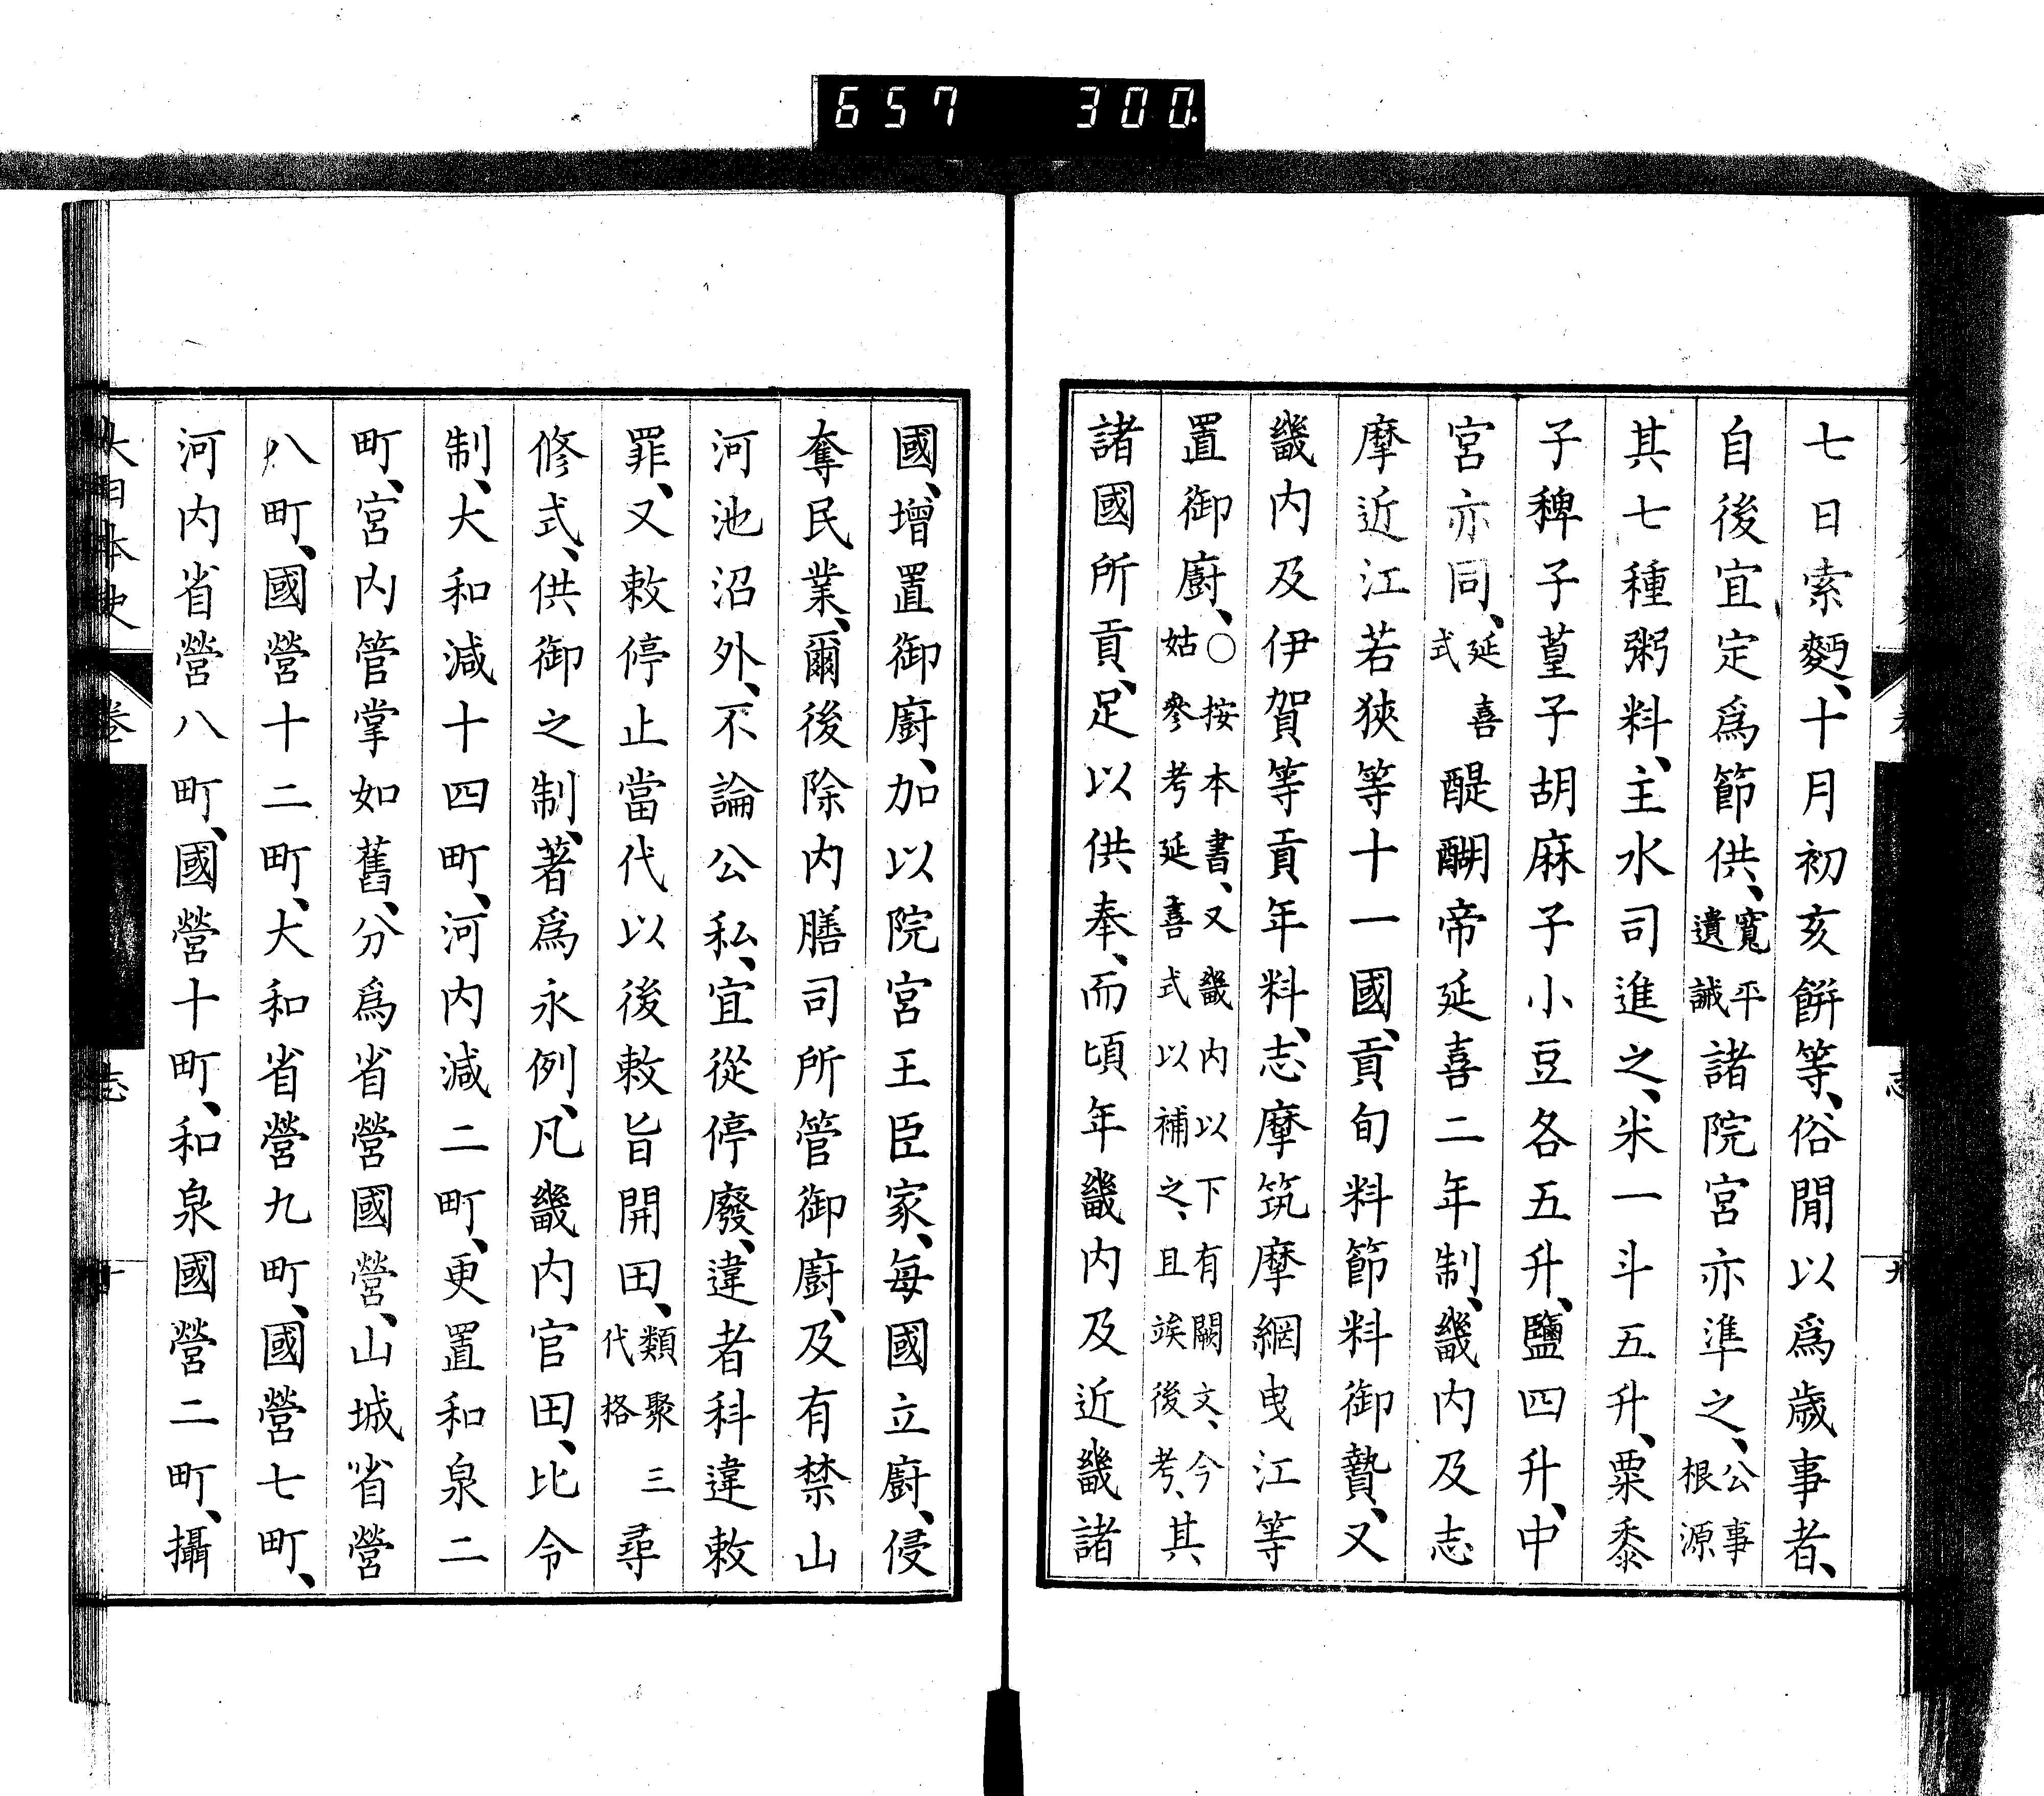 657 300.
七日索麪、十月初亥餠等、俗閒以爲歲事者、
自後宜定爲節供、寬平遺誡諸院宮亦準之、公事根源
其七種粥料、主水司進之、米一斗五升、粟黍
子稗子葟子胡麻子小豆各五升、鹽四升、中
宮亦同、延喜式醍醐帝延喜二年制、畿內及志
摩近江若狹等十一國、貢旬料節料御贄、又
畿內及伊賀等貢年料、志摩筑摩網曳江等
置御廚、○按本書、又畿內以下有闕文、今姑參考延喜式以補之、且竢後考、其
諸國所貢、足以供奉、而頃年畿內及近畿諸
國、增置御廚、加以院宮王臣家、每國立廚、侵
奪民業、爾後除內膳司所管御廚、及有禁山
河池沼外、不論公私、宜從停廢、違者科違敕
罪、又敕停止當代以後敕旨開田、類聚三代格尋
修式、供御之制、著爲永例、凡畿內官田、比令
制、大和減十四町、河內減二町、更置和泉二
町、宮內管掌如舊、分爲省營國營、山城省營
八町、國營十二町、大和省營九町、國營七町、
河內省營八町、國營十町、和泉國營二町、攝
大日本史 卷 志 十